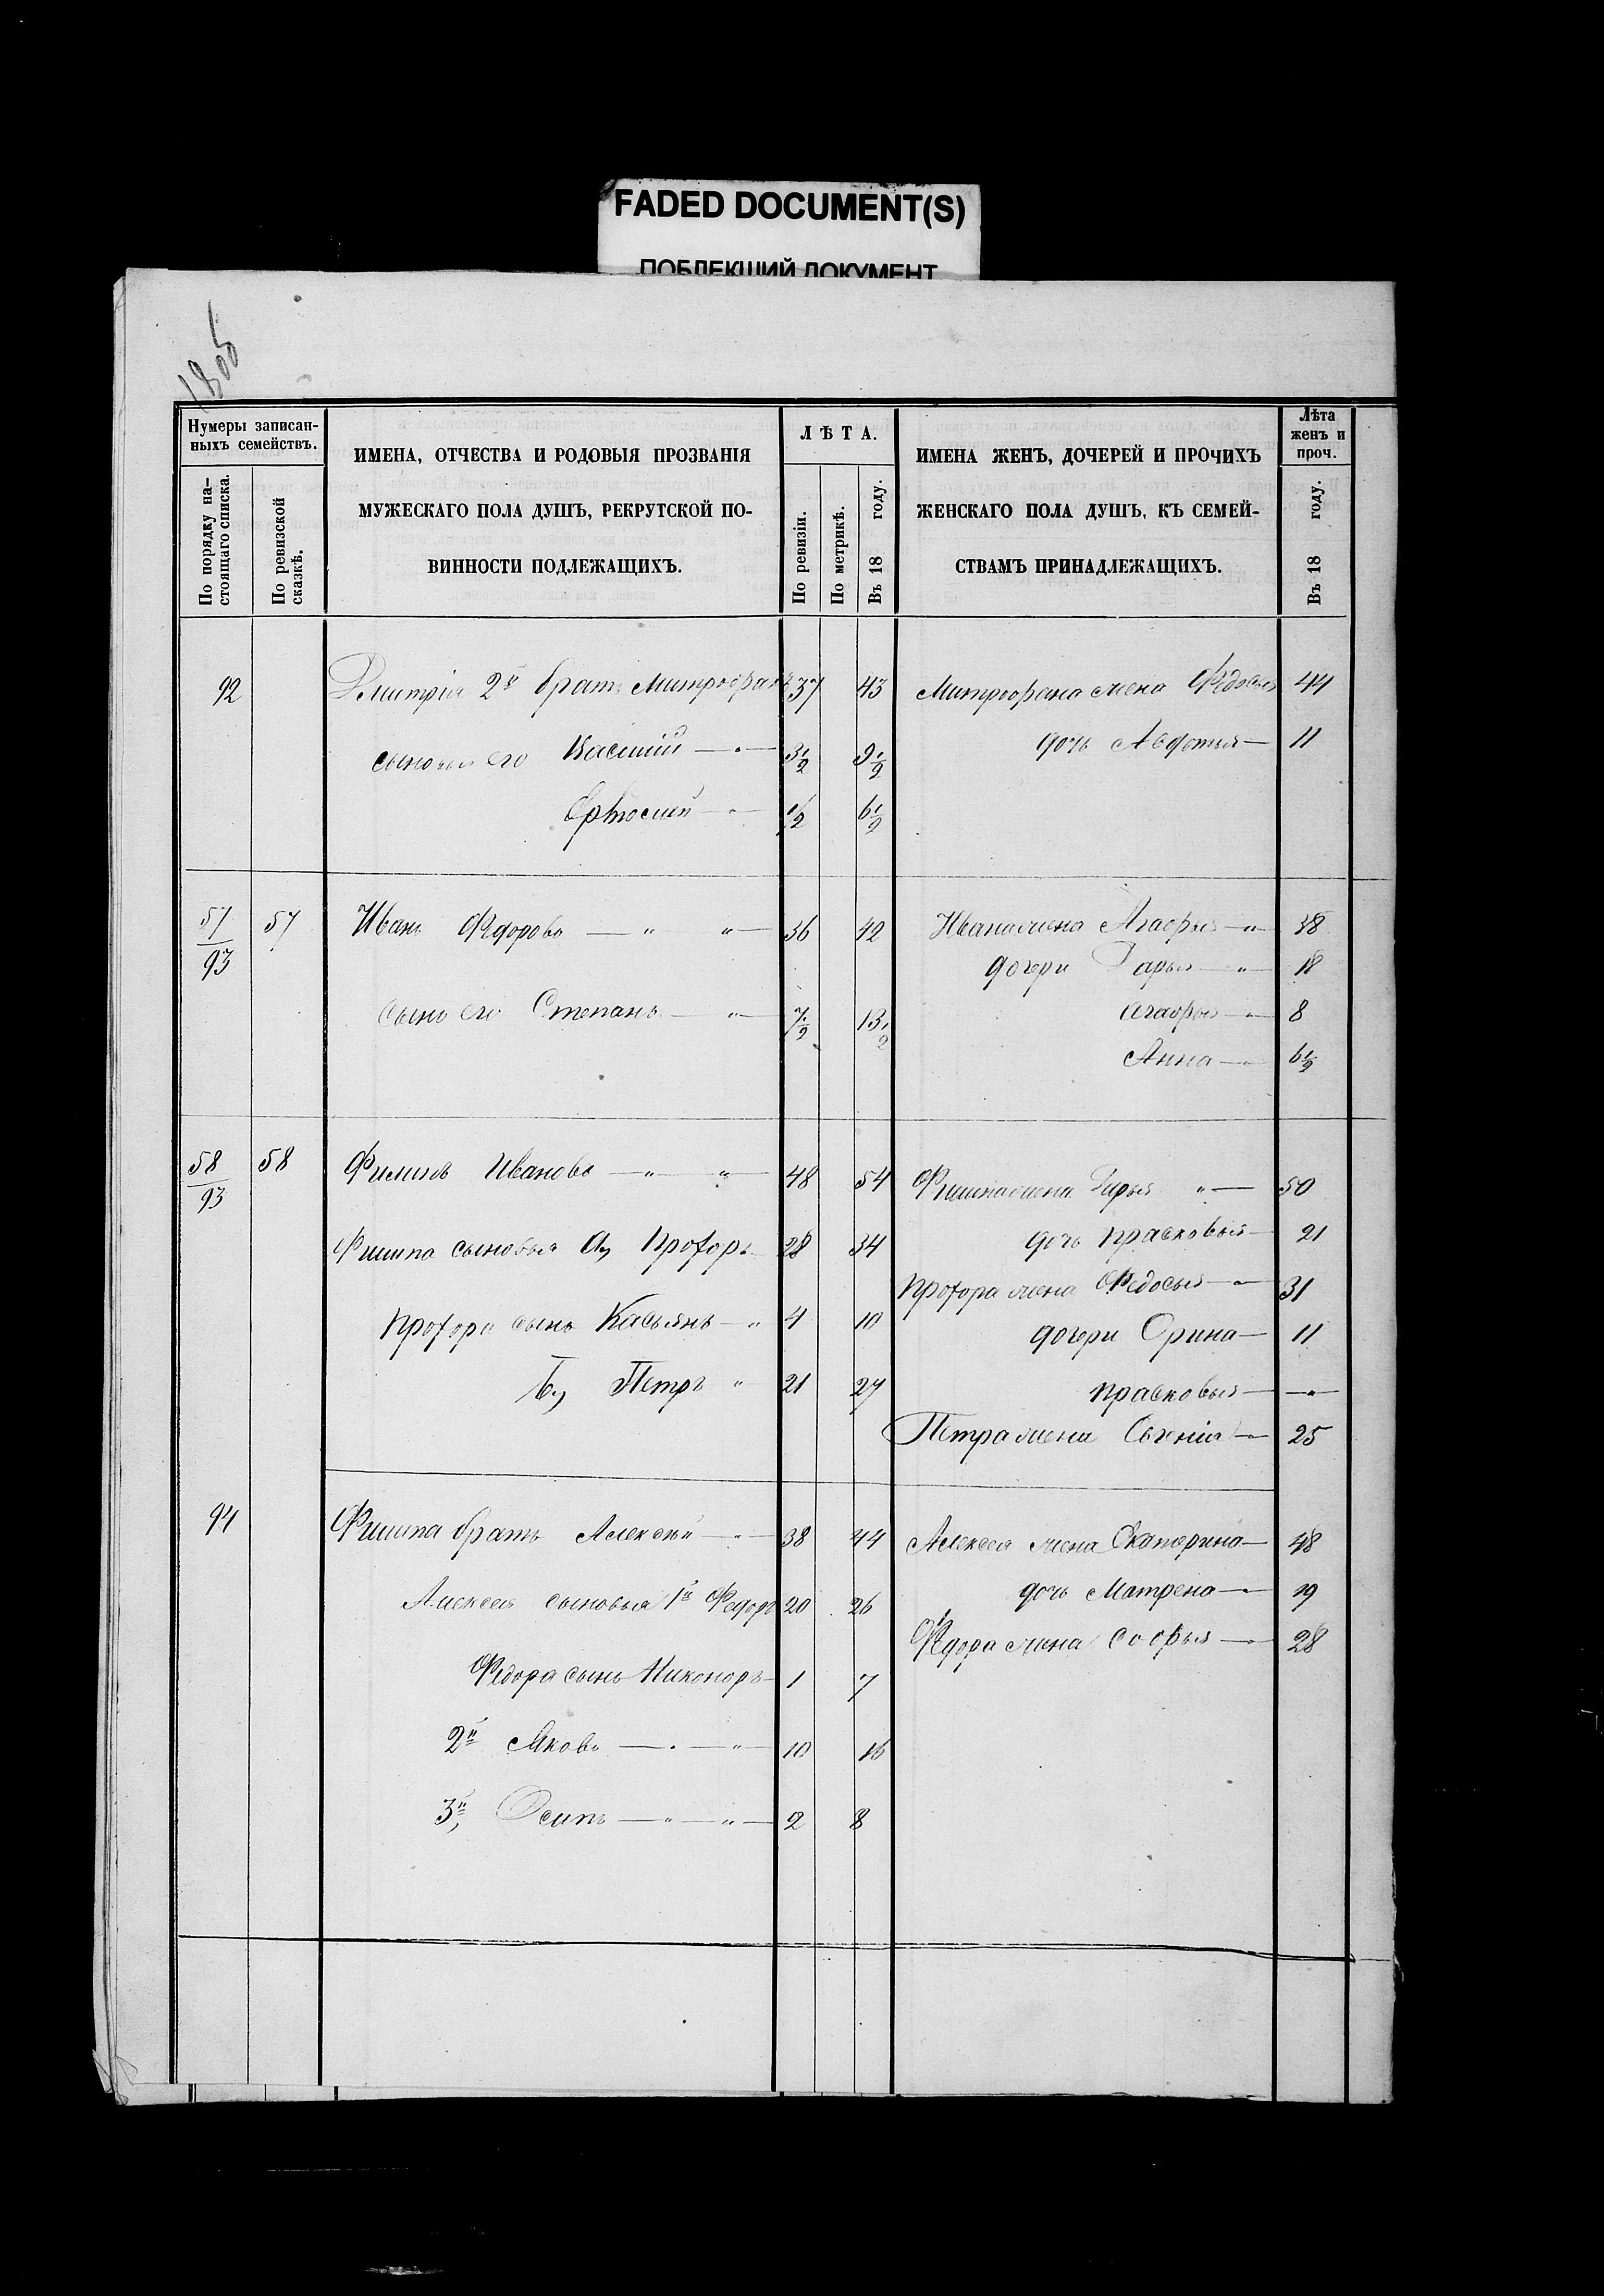 FADED DOCUMENT(S)
ПОБЛЕКШИЙ ДОКУМЕНТ
Нумеры записан-
ныхъ семействъ.
По порядку на-
стоящаго списка.
По ревизской
сказкѣ.
ИМЕНА, ОТЧЕСТВА И РОДОВЫЯ ПРОЗВАНІЯ
МУЖЕСКАГО ПОЛА ДУШЪ, РЕКРУТСКОЙ ПО-
ВИННОСТИ ПОДЛЕЖАЩИХЪ.
ЛѢТА.
По ревизіи.
По метрикѣ.
Въ 18 году.
ИМЕНА ЖЕНЪ, ДОЧЕРЕЙ И ПРОЧИХЪ
ЖЕНСКАГО ПОЛА ДУШЪ, КЪ СЕМЕЙ-
СТВАМЪ ПРИНАДЛЕЖАЩИХЪ.
Лѣта
женъ и
проч.
Въ 18 году.
92 Дмитрія 2й братъ Митрофанъ 37 43 Митрофана жена Федосья 44
сыновья его 3½ 9½ дочь Авдотья — 11
½ 6½
57/93 57 Иванъ Федоровъ — " " — 36 42 Ивана жена Агафья — " — 38
дочери Дарья — " — 18
сынъ его Степанъ — " — 7½ 13½ Агафья — " — 8
Анна — " — 6½
58/93 58 Филипъ Ивановъ — " — " — 48 54 Филипа жена Дарья " — 50
Филипа сыновья а, Прохоръ — 28 34 дочь Прасковья — 21
Прохора жена Федосья — " — 31
Прохора сынъ Касьянъ — " 4 10 дочери Орина — 11
б, Петръ " 21 27 Прасковья — — " —
Петра жена Евгенія — " — 25
94 Филипа братъ Алексѣй — " — 38 44 Алексея жена Екатерина — 48
Алексея сыновья 1й Федоръ 20 26 дочь Матрена — " — 19
Федора жена Софья — " — 28
Федора сынъ Никоноръ — 1 7
2й Яковъ — " — " — 10 16
3й, Осипъ — " — " — 2 8